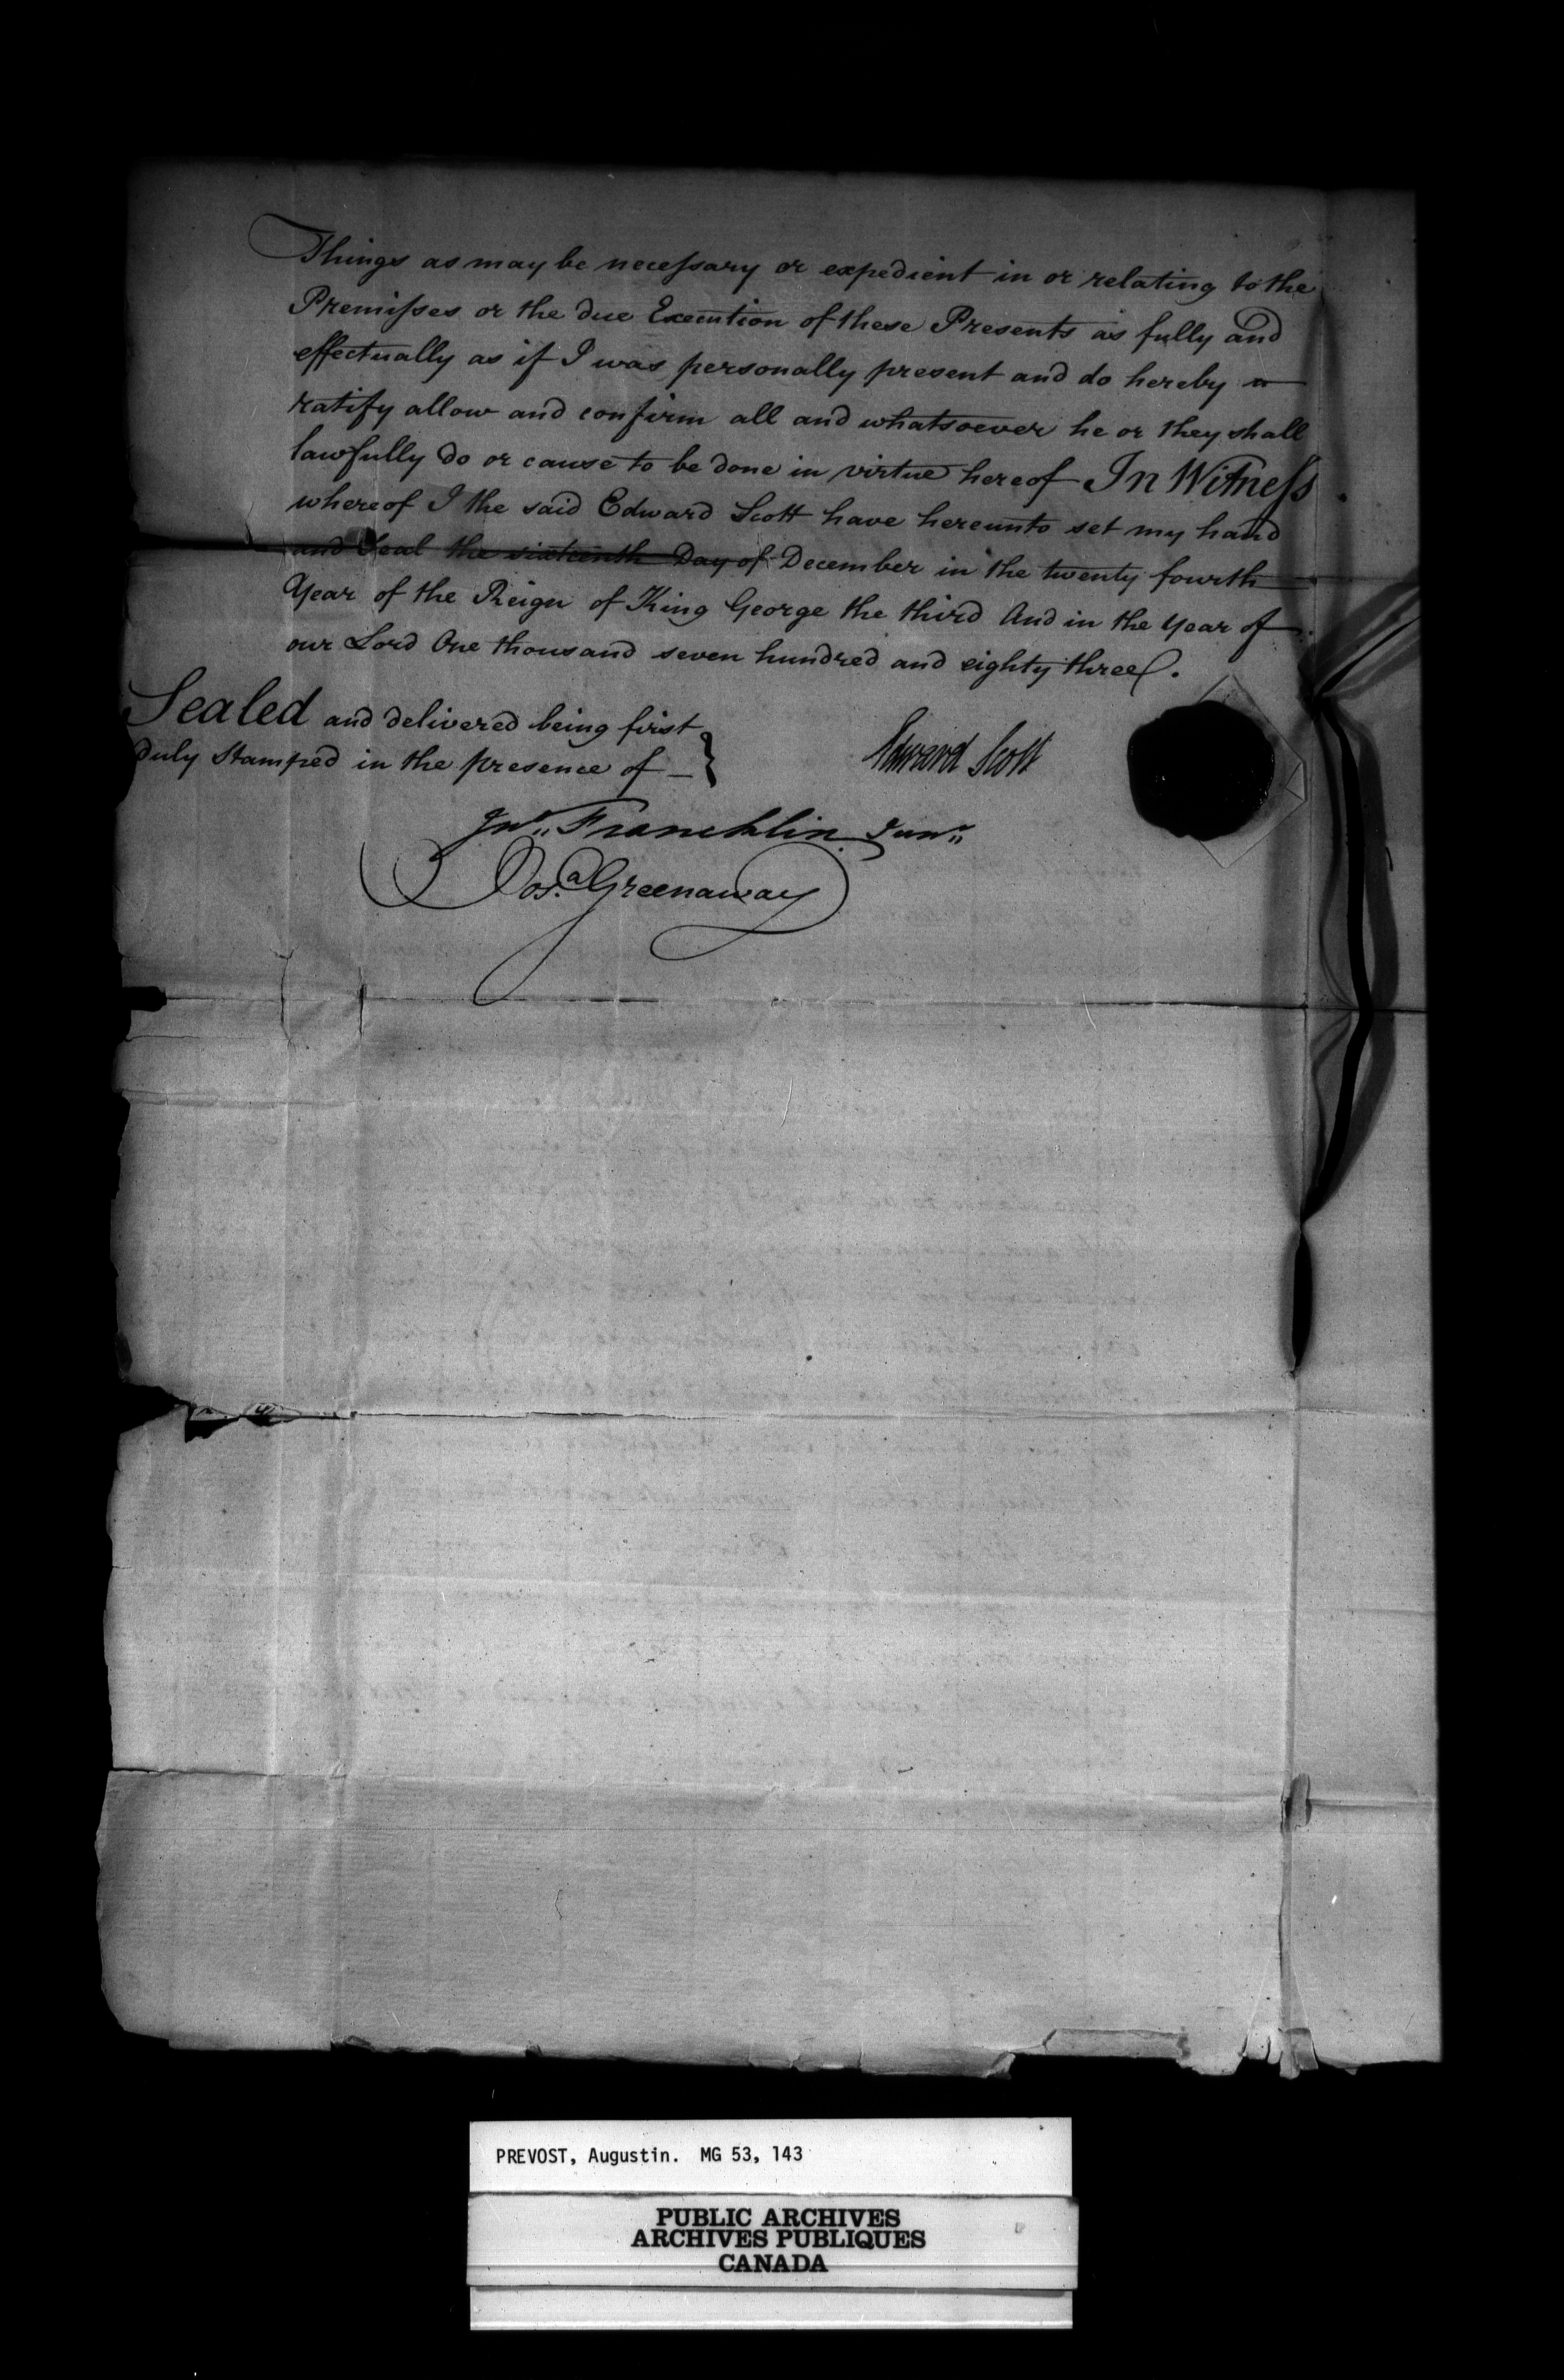 Things as may be necessary or expedient in or relating to the
Premisses or the due Execution of these Presents as fully and
effectually as if I was personally present and do hereby
ratify allow and confirm all and whatsoever he or they shall
lawfully do or cause to be done in virtue hereof In Witness
whereof I the said Edward Scott have hereunto set my hand
and Seal the sixteenth Day of December in the twenty fourth
Year of the Reign of King George the third And in the Year of
our Lord One thousand seven hundred and eighty three.
Sealed and delivered being first
duly Stamped in the presence of
Edward Scott
Jno. Franchlin Junr.
Josa. Greenaway
PREVOST, Augustin. MG 53, 143
PUBLIC ARCHIVES
ARCHIVES PUBLIQUES
CANADA